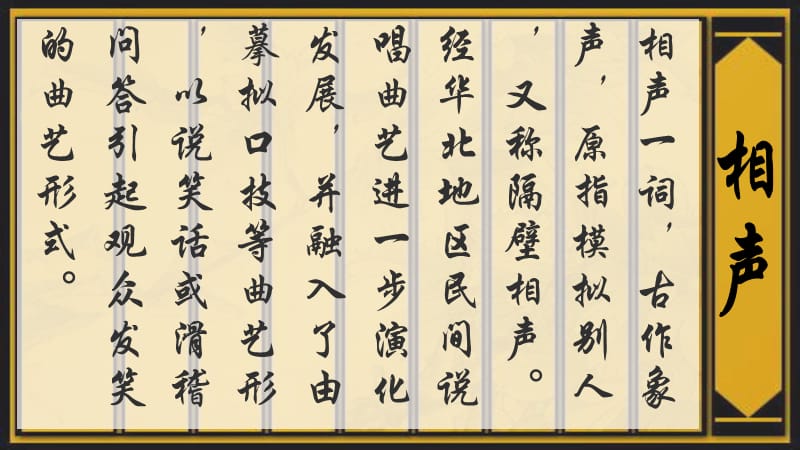 相声
相声一词，古作象
声，原指模拟别人
，又称隔壁相声。
经华北地区民间说
唱曲艺进一步演化
发展，并融入了由
摹拟口技等曲艺形
，以说笑话或滑稽
问答引起观众发笑
的曲艺形式。